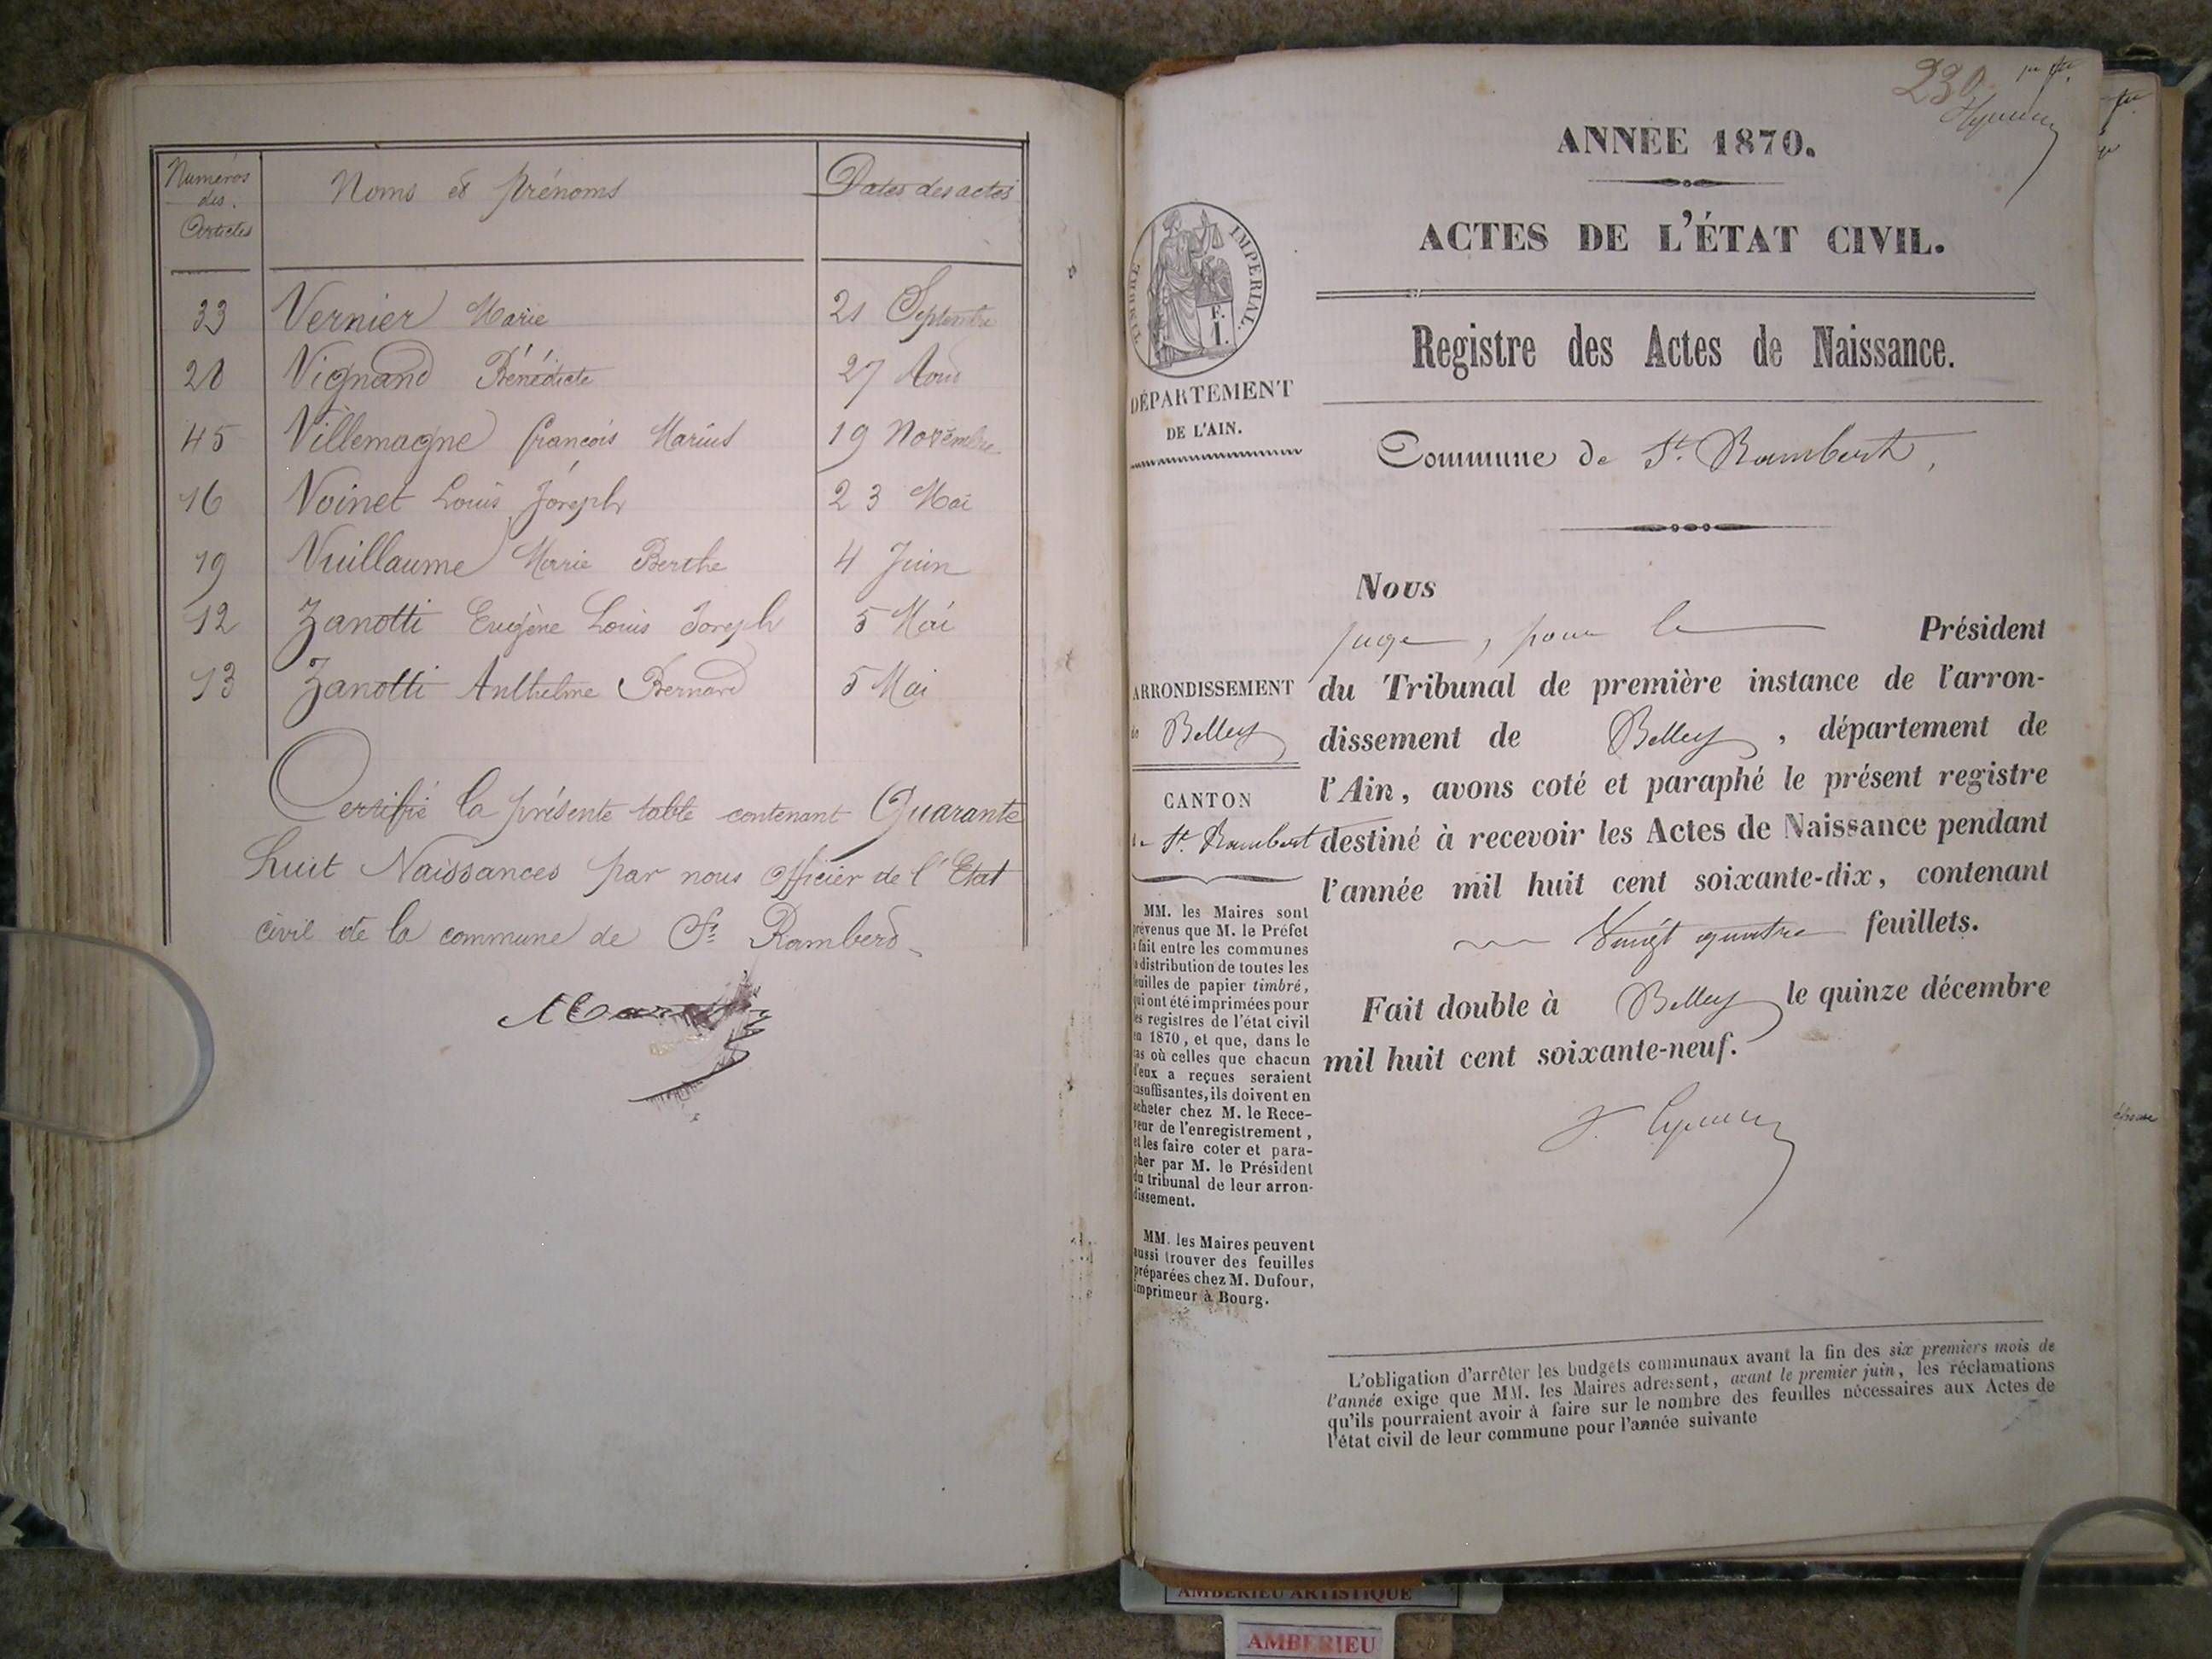 Numéros des Articles
Noms et Prénoms
Dates des actes
33 Vernier Marie 21 Septembre
28 Vignand Bénédicte 27 Aout
45 Villemagne françois Marius 19 Novembre
16 Voinet Louis Joseph 23 Mai
19 Vuillaume Marie Berthe 4 Juin
12 Zanotti Eugène Louis Joseph 5 Mai
13 Zanotti Anthelme Bernard 5 Mai
Certifié la présente table contenant Quarante
huit Naissances par nous officier de l'Etat
civil de la commune de St Rambert
230
ANNÉE 1870.
ACTES DE L'ÉTAT CIVIL.
TIMBRE IMPERIAL.
F.
1.
Registre des Actes de Naissance.
DÉPARTEMENT
DE L'AIN.
Commune de St. Rambert,
Nous
juge, pour le Président
du Tribunal de première instance de l'arron-
dissement de Belley, département de
l'Ain, avons coté et paraphé le présent registre
destiné à recevoir les Actes de Naissance pendant
l'année mil huit cent soixante-dix, contenant
Vingt quatre feuillets.
Fait double à Belley le quinze décembre
mil huit cent soixante-neuf.
ARRONDISSEMENT
de Belley
CANTON
de St. Rambert
MM. les Maires sont
prévenus que M. le Préfet
a fait entre les communes
la distribution de toutes les
feuilles de papier timbré,
qui ont été imprimées pour
les registres de l'état civil
en 1870, et que, dans le
cas où celles que chacun
d'eux a reçues seraient
insuffisantes, ils doivent en
acheter chez M. le Rece-
veur de l'enregistrement,
et les faire coter et para-
pher par M. le Président
du tribunal de leur arron-
dissement.
MM. les Maires peuvent
aussi trouver des feuilles
préparées chez M. Dufour,
imprimeur à Bourg.
L'obligation d'arrêter les budgets communaux avant la fin des six premiers mois de
l'année exige que MM. les Maires adressent, avant le premier juin, les réclamations
qu'ils pourraient avoir à faire sur le nombre des feuilles nécessaires aux Actes de
l'état civil de leur commune pour l'année suivante
AMBERIEU ARTISTIQUE
AMBERIEU